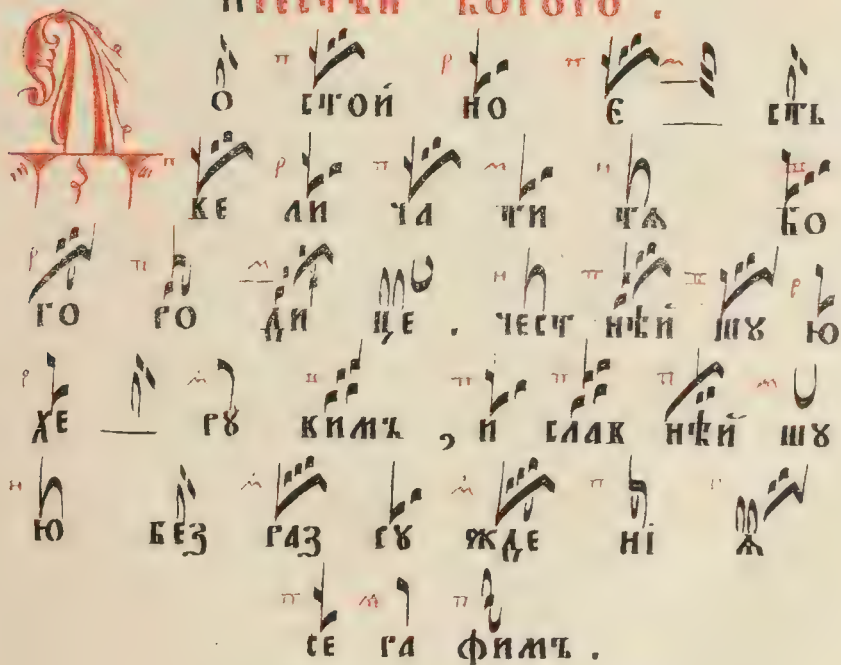 Д О СТОЙ НО Е СТЬ
ВЕ ЛИ ЧА ТИ ТѦ БО
ГО РО ДИ ЦЕ . ЧЕСТ НѢЙ ШꙊ Ю
ХЕ РꙊ ВИМЪ , И СЛАВ НѢЙ ШꙊ
Ю БЕЗ РАЗ СꙊ ЖДЕ НІ Ѧ
СЕ РА ФИМЪ .